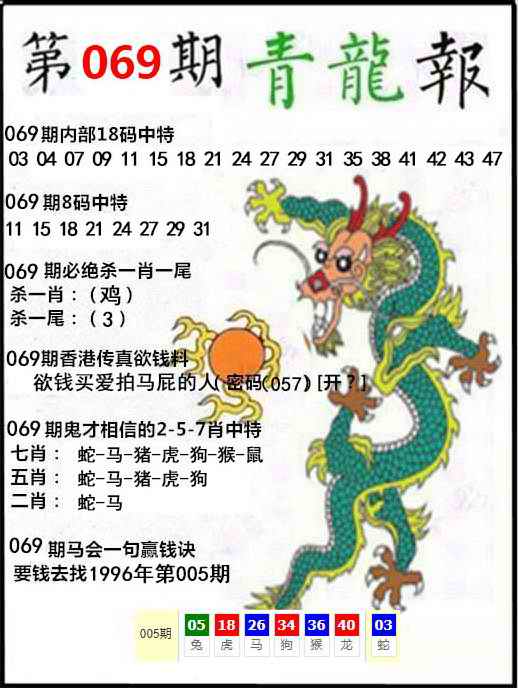 第069期 青龍報
069期内部18码中特
03 04 07 09 11 15 18 21 24 27 29 31 35 38 41 42 43 47
069期8码中特
11 15 18 21 24 27 29 31
069 期必绝杀一肖一尾
杀一肖：（鸡）
杀一尾：（3）
069期香港传真欲钱料
欲钱买爱拍马屁的人( 密码(057) [开？]
069期鬼才相信的2-5-7肖中特
七肖： 蛇-马-猪-虎-狗-猴-鼠
五肖： 蛇-马-猪-虎-狗
二肖： 蛇-马
069 期马会一句赢钱诀
要钱去找1996年第005期
005期 05 18 26 34 36 40 03
兔 虎 马 狗 猴 龙 蛇